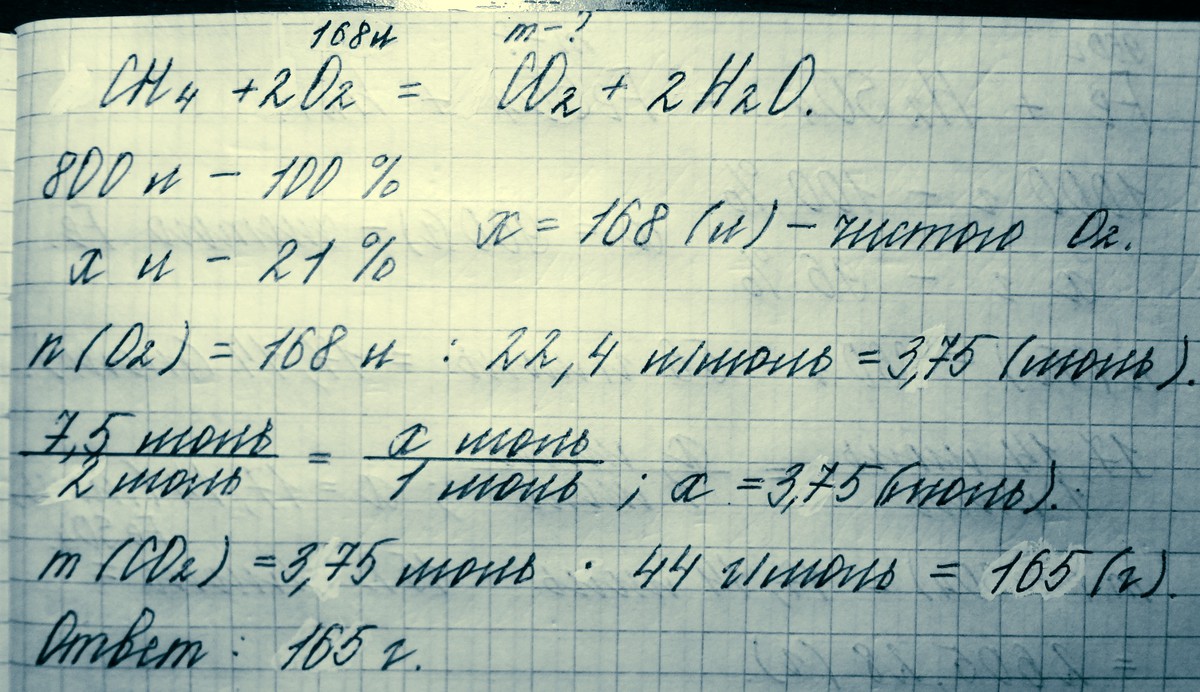 168л m-?
CH4 + 2O2 = CO2 + 2H2O.
800 л - 100 %
x л - 21 % x = 168 (л) - чистого O2.
n (O2) = 168 л : 22,4 л/моль = 3,75 (моль).
7,5 моль / 2 моль = x моль / 1 моль ; x = 3,75 (моль).
m (CO2) = 3,75 моль · 44 г/моль = 165 (г).
Ответ : 165 г.